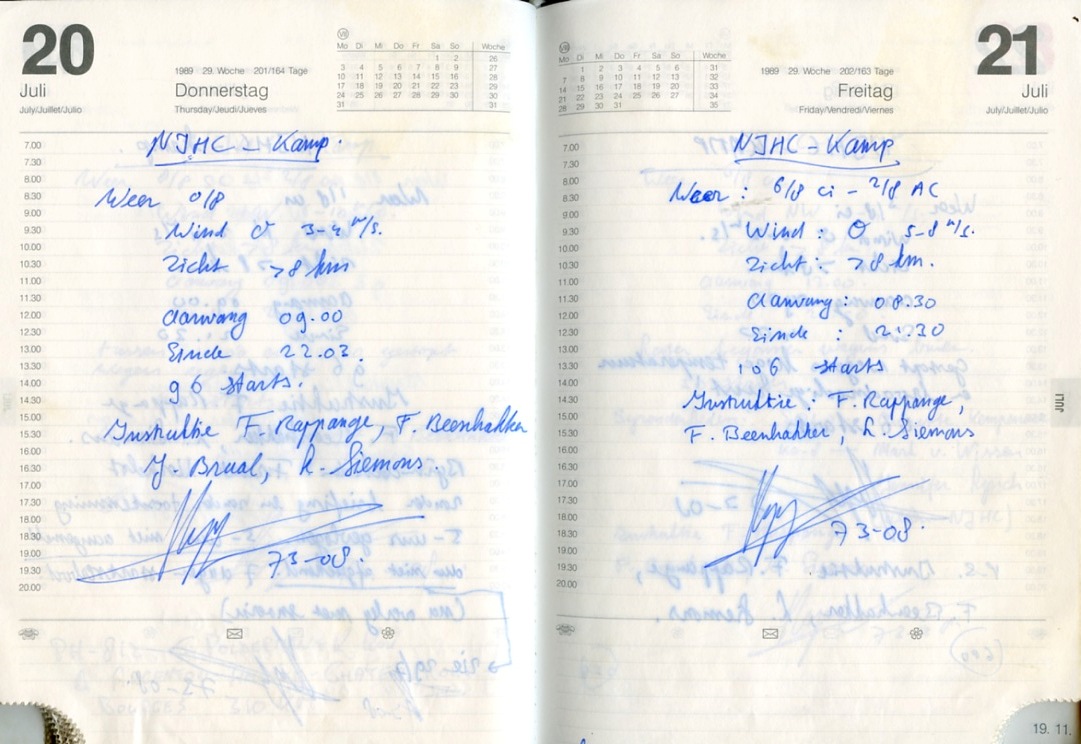 20
Juli
July/Juillet/Julio
1989 29. Woche 201/164 Tage
Donnerstag
Thursday/Jeudi/Jueves
VII
Mo Di Mi Do Fr Sa So Woche
1 2 26
3 4 5 6 7 8 9 27
10 11 12 13 14 15 16 28
17 18 19 20 21 22 23 29
24 25 26 27 28 29 30 30
31 31
7.00
7.30
8.00
8.30
9.00
9.30
10.00
10.30
11.00
11.30
12.00
12.30
13.00
13.30
14.00
14.30
15.00
15.30
16.00
16.30
17.00
17.30
18.00
18.30
19.00
19.30
20.00
NJHC - Kamp.
Weer 0/8
Wind O 3-4 m/s.
Zicht >8 km
Aanvang 09.00
Einde 22.03.
96 starts.
Instruktie F. Rappange, F. Beenhakker
J. Braal, R. Siemons.
73-08.
21
Juli
July/Juillet/Julio
1989 29. Woche 202/163 Tage
Freitag
Friday/Vendredi/Viernes
VIII
Mo Di Mi Do Fr Sa So Woche
1 2 3 4 5 6 31
7 8 9 10 11 12 13 32
14 15 16 17 18 19 20 33
21 22 23 24 25 26 27 34
28 29 30 31 35
7.00
7.30
8.00
8.30
9.00
9.30
10.00
10.30
11.00
11.30
12.00
12.30
13.00
13.30
14.00
14.30
15.00
15.30
16.00
16.30
17.00
17.30
18.00
18.30
19.00
19.30
20.00
NJHC - Kamp
Weer : 6/8 ci - 2/8 AC
Wind : O 5-8 m/s.
Zicht : >8 km.
Aanvang : 08.30
Einde : 21.30
106 starts
Instruktie : F. Rappange,
F. Beenhakker, R. Siemons
73-08.
JULI
19. 11.